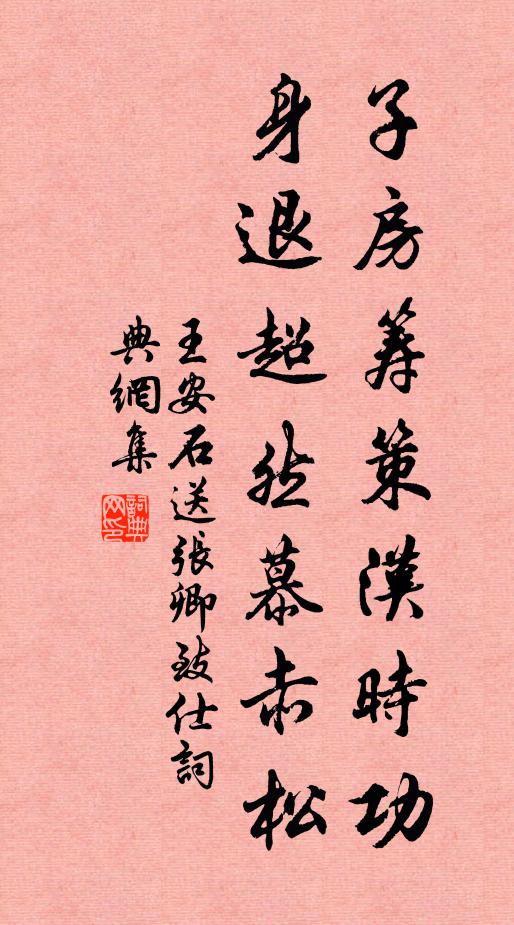 子房筹策漢時功
身退超然慕赤松
王安石送張卿致仕詞
典網集
詞典网印